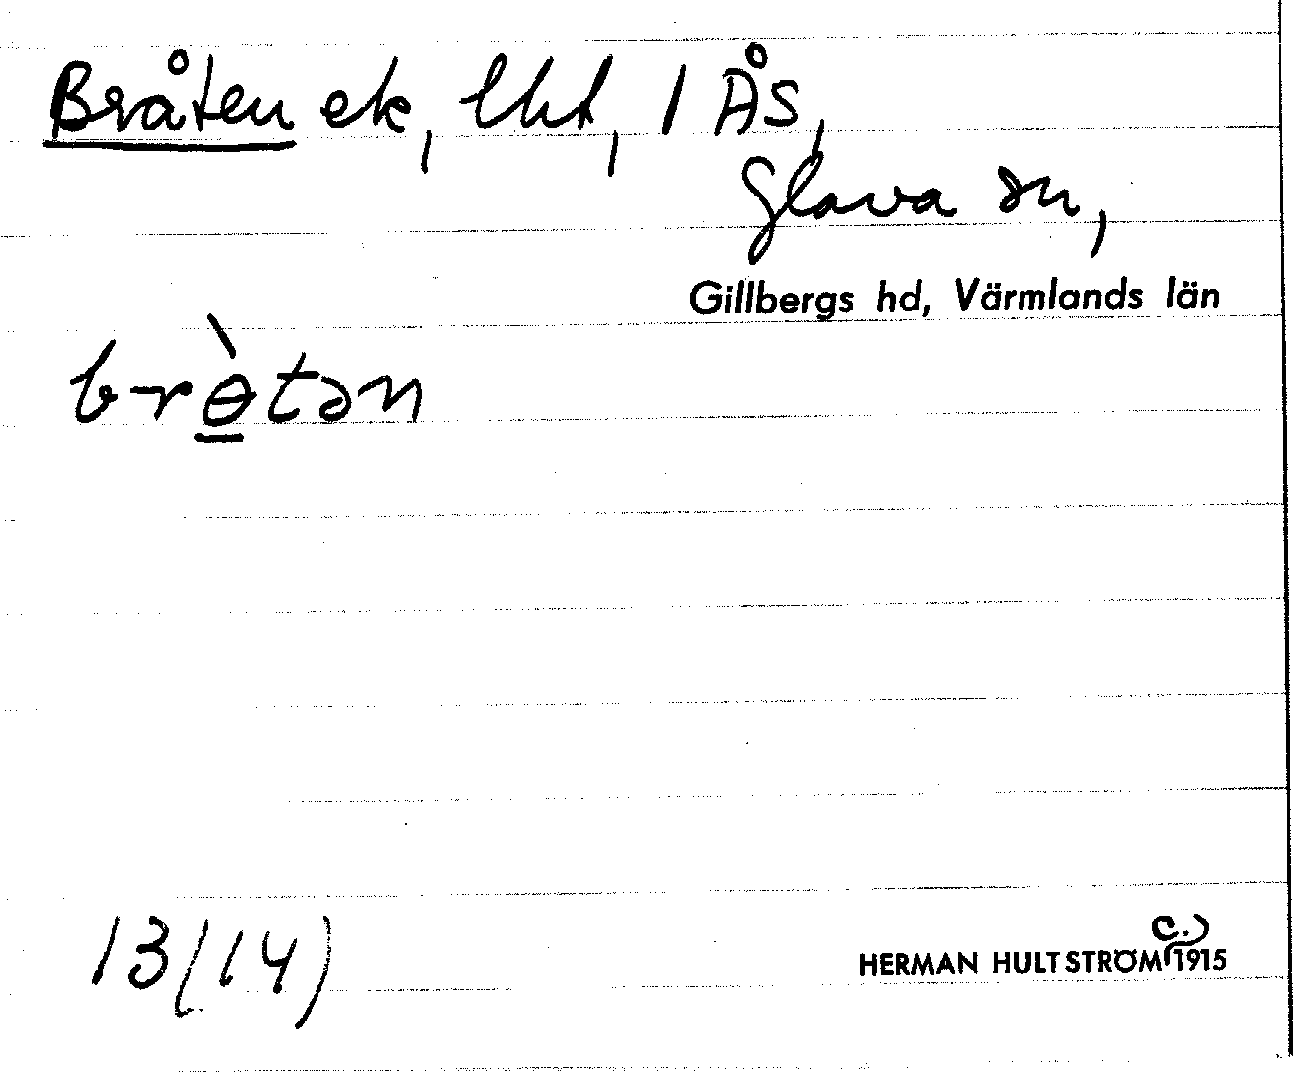 Bråten ek, lht, 1 Ås,
Glava sn,
Gillbergs hd, Värmlands län
brɵ̀tən
13(14)
c.)
HERMAN HULTSTRÖM 1915